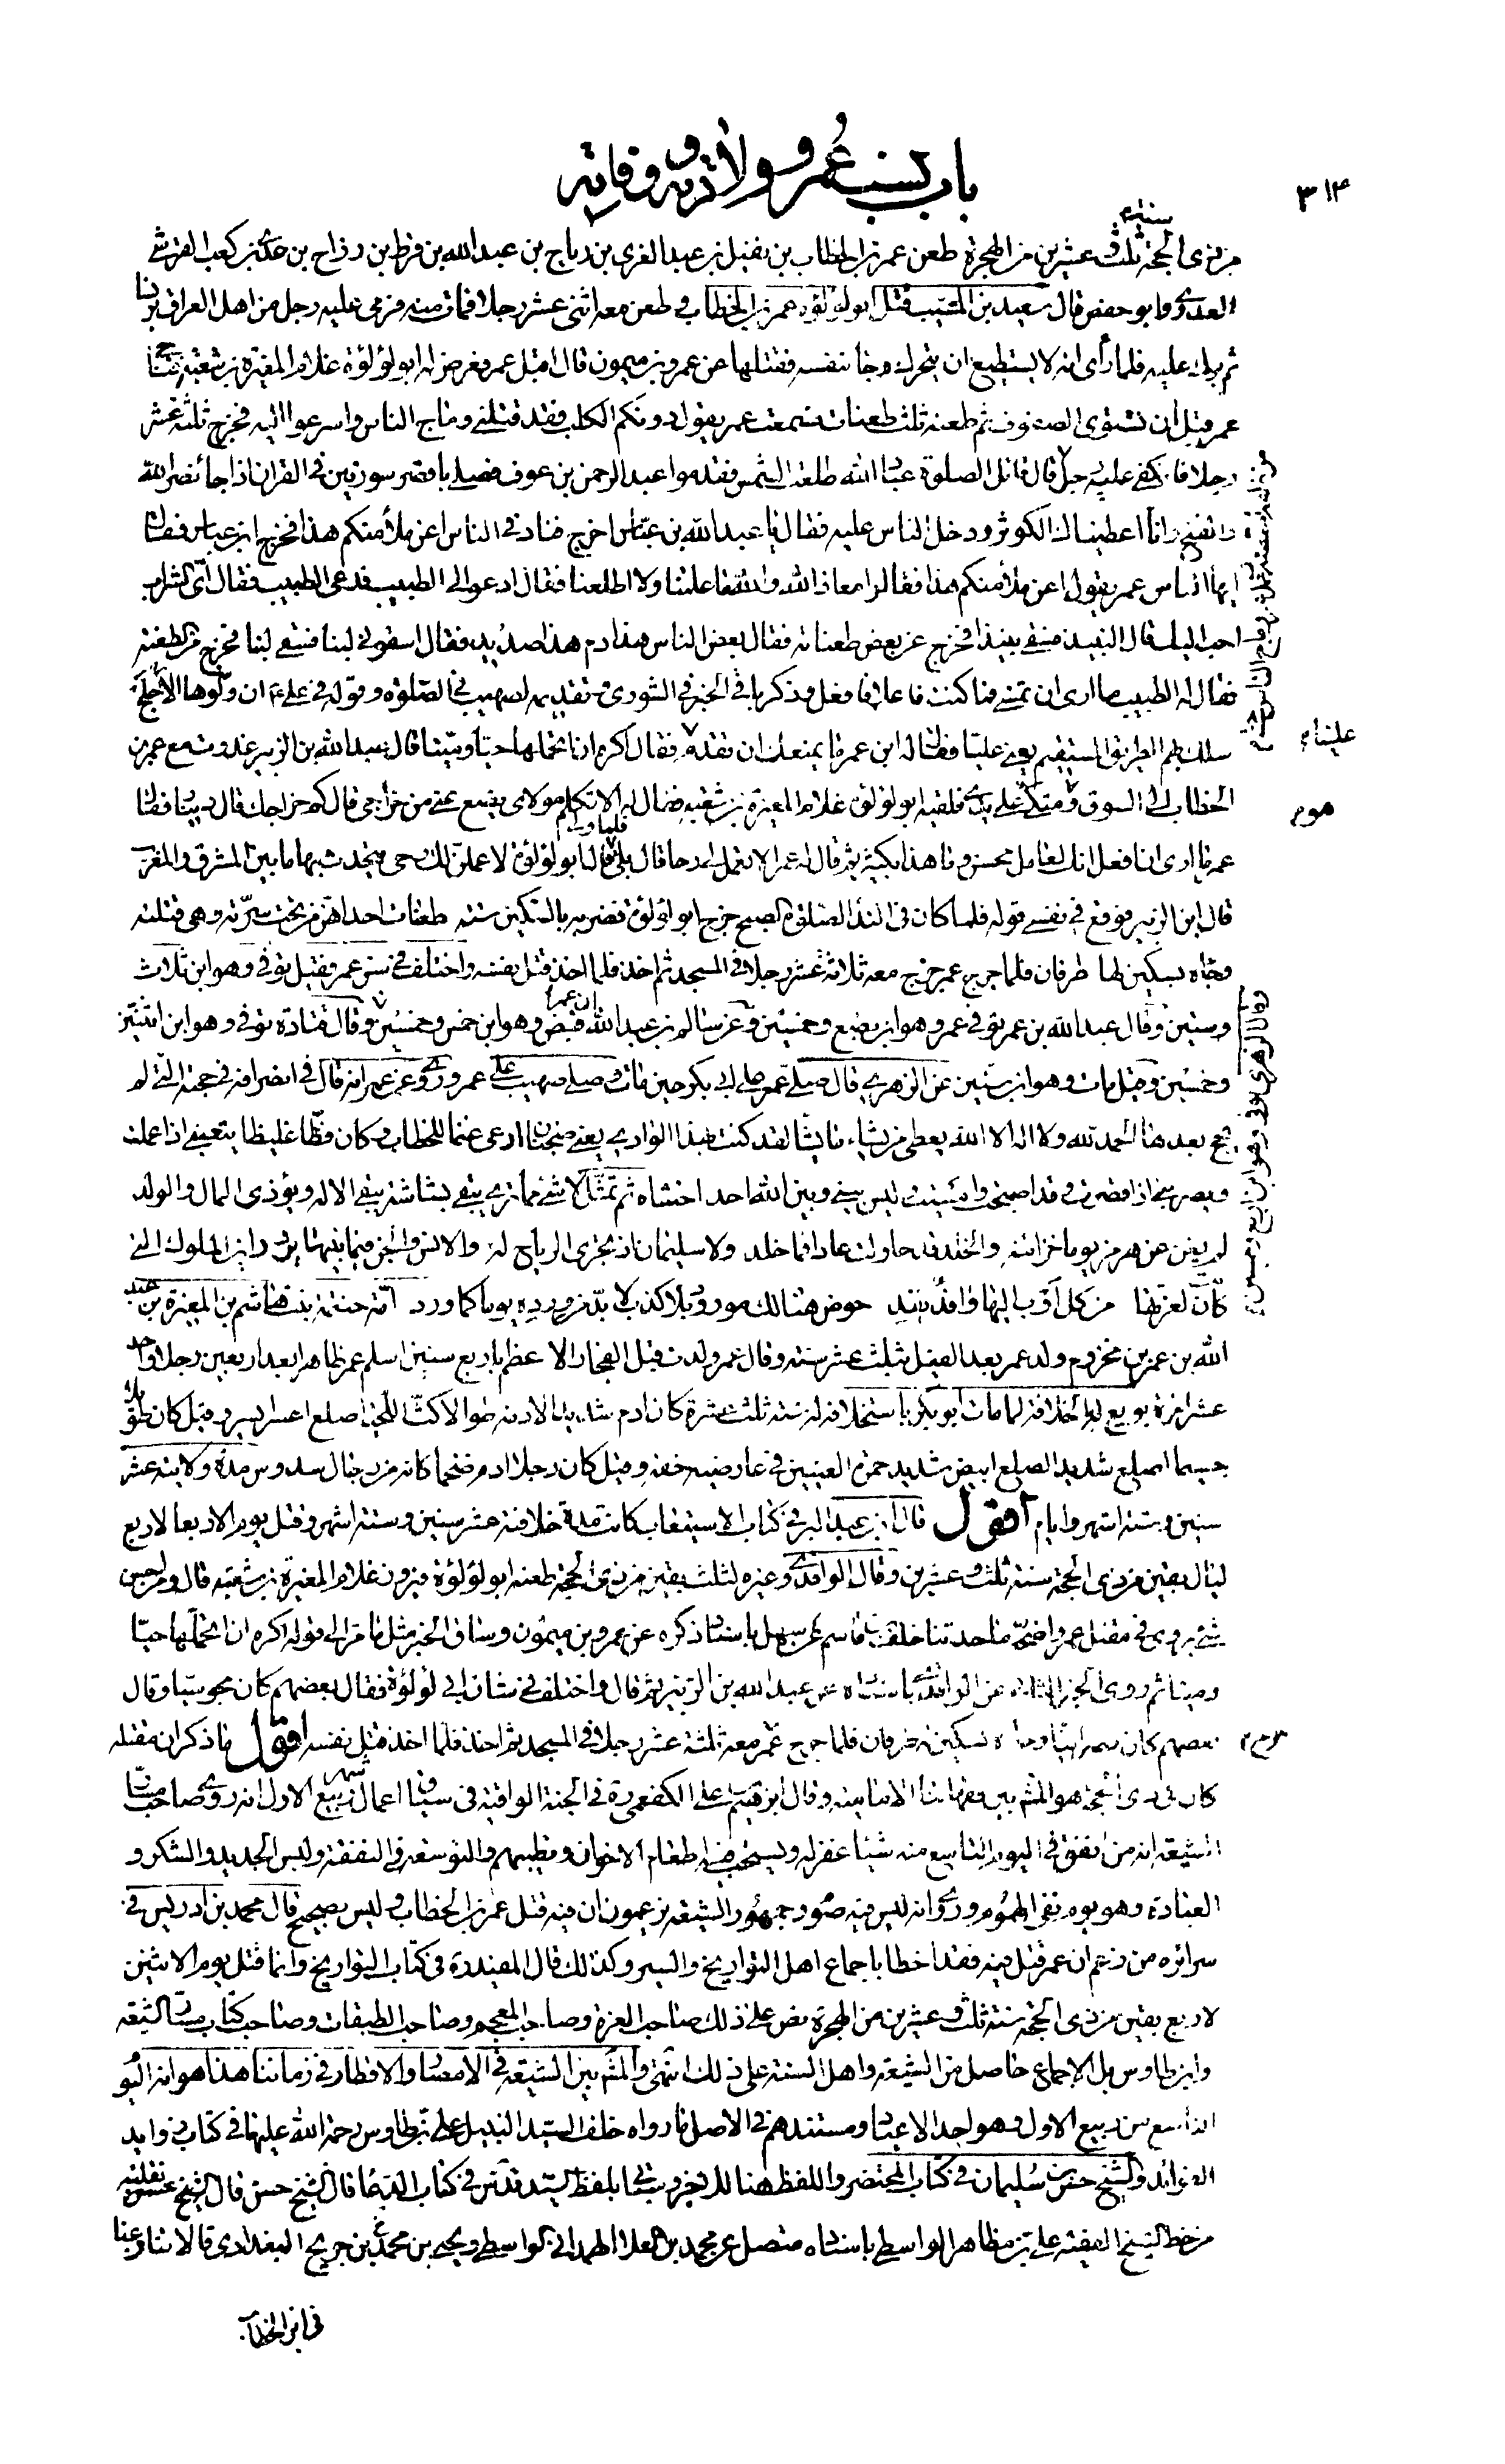 ٣١٤
باب نسب عمر وولادته ووفاته
من ذي الحجة سنة ثلث وعشرين من الهجرة طعن عمر بن الخطاب بن نفيل بن عبد العزى بن رباح بن عبد الله بن قرط بن رزاح بن عدي بن كعب القرشي
العدوي ابو حفص قال سعيد بن المسيب قتل ابو لؤلؤة عمر بن الخطاب وطعن معه اثنى عشر رجلا فمات منهم فرمى عليه رجل من اهل العراق برنسا
ثم برك عليه فلما رأى انه لا يستطيع ان يتحرك وجأ نفسه فقتلها عن عمرو بن ميمون قال اقبل عمر فعرض له ابو لؤلؤة غلام المغيرة بن شعبة
عمر قبل ان تستوى الصفوف ثم طعنه ثلث طعنات فسمعت عمر يقول دونكم الكلب فقد قتلنى وماج الناس واسرعوا اليه فجرح ثلثة عشر
رجلا فانكفى عليه رجل قال قائل الصلوة عباد الله طلعت الشمس فقدموا عبد الرحمن بن عوف فصلى باقصر سورتين فى القران اذا جاء نصر الله
وانا اعطيناك الكوثر ودخل الناس عليه فقال يا عبد الله بن عباس اخرج فناد فى الناس اعن ملأ منكم هذا فخرج ابن عباس فقال
ايها الناس عمر يقول اعن ملأ منكم هذا فقالوا معاذ الله والله ما علمنا ولا اطلعنا فقال ادعوا الى الطبيب فدعى الطبيب فقال اى الشراب
احب اليك قال النبيذ فسقى نبيذا فخرج من بعض طعناته فقال بعض الناس هذا دم هذا صديد فقال اسقونى لبنا فسقى لبنا فخرج من الطعنة
فقال له الطبيب ما ارى ان تمسى فما كنت فاعلا فافعل وذكر باقى الخبر فى الشورى وتقديمه لصهيب فى الصلوة وقوله فى على ع ان ولوها الاجلح
سلك بهم الطريق المستقيم يعنى عليا فقال له ابن عمر ما يمنعك ان تقدم فقال اكره ان اتحملها حيا وميتا قال عبد الله بن الزبير غدوت مع عمر بن
الخطاب الى السوق وهو متكئ على يدى فلقيه ابو لؤلؤة غلام المغيرة بن شعبة فقال له الا تكلم مولاى يضع عنى من خراجى قال كم خراجك قال دينار فقال
عمر ما ارى ان افعل انك لعامل محسن وما هذا بكثير ثم قال له عمر الا تعمل لى رحا قال بلى فلما ولى قال ابو لؤلؤة لاعملن لك رحى يتحدث بها ما بين المشرق والمغرب
قال ابن الزبير فوقع فى نفسى قوله فلما كان فى النداء لصلوة الصبح خرج ابو لؤلؤة فضربه بالسكين ستة طعنات احداهن من تحت سرته وهى قتلته
وجاءه بسكين لها طرفان فلما جرح عمر جرح معه ثلاثة عشر رجلا فى المسجد ثم اخذ فلما اخذ قتل نفسه واختلف فى سن عمر فقيل توفى وهو ابن ثلاث
وستين وقال عبد الله بن عمر توفى عمر وهو ابن بضع وخمسين وعن سالم بن عبد الله ان عمر قبض وهو ابن خمس وخمسين وقال قتادة توفى وهو ابن اثنتين
وخمسين وقيل مات وهو ابن ستين عن الزهرى قال صلى عمر على ابى بكر حين مات وصلى صهيب على عمر وروى عن عمر انه قال فى انصرافه فى حجته التى لم
يحج بعدها الحمد لله ولا اله الا الله يعطى من يشاء ما يشاء لقد كنت بهذا الوادى يعنى ضجنان ارعى غنما للخطاب وكان فظا غليظا يتعبنى اذا عملت
ويضربنى اذا قصرت وقد اصبحت وامسيت وليس بينى وبين الله احد اخشاه ثم تمثل لا شئ مما ترى يبقى بشاشته يبقى الاله ويؤذى المال والولد
لم يغن عن هرمز يوما خزائنه والخلد قد حاولت عاد فما خلدوا ولا سليمان اذ تجرى الرياح له والانس والجن فيما بينها يرد اين الملوك التى
كان لعزتها من كل اوب اليها وافد يفد حوض هنالك مورود بلا كذب لا بد من ورده يوما كما ورد امه حنتمة بنت هاشم بن المغيرة بن عبد
الله بن عمر بن مخزوم ولد عمر بعد الفيل بثلث عشر سنة وقال عمر ولدت قبل الفجار الاعظم باربع سنين اسلم عمر ظاهرا بعد اربعين رجلا واحد
عشر امرة بويع له بالخلافة لما مات ابو بكر باستخلافه له سنة ثلث عشرة كان ادم شديد الادمة طوالا كث اللحية اصلع اعسر ايسر وقيل كان طويلا
جسيما اصلع شديد الصلع ابيض شديد حمرة العينين فى عارضيه خفة وقيل كان رجلا ادم ضخما كانه من رجال سدوس مدة ولايته عشر
سنين وستة اشهر وايام اقول قال ابن عبد البر فى كتاب الاستيعاب كانت مدة خلافته عشر سنين وستة اشهر وقتل يوم الاربعاء لاربع
ليال بقين من ذى الحجة سنة ثلث وعشرين وقال الواقدى وغيره لثلث بقين من ذى الحجة طعنه ابو لؤلؤة فيروز غلام المغيرة بن شعبة قال ومن احسن
شئ يروى فى مقتل عمر واصحه ما حدثنا خلف بن قاسم بن سهل باسناد ذكره عن عمرو بن ميمون وساق الخبر مثل ما مر الى قوله اكره ان اتحملها حيا
وميتا ثم روى الخبر الثانى عن الواقدى باسناده عن عبد الله بن الزبير ثم قال واختلف فى شان ابى لؤلؤة فقال بعضهم كان مجوسيا وقال
بعضهم كان نصرانيا وجاءه بسكين له طرفان فلما جرح عمر جرح معه ثلثة عشر رجلا فى المسجد ثم اخذ فلما اخذ قتل نفسه اقول ما ذكر ان مقتله
كان فى ذى الحجة هو المشهور بين فقهائنا الامامية وقال ابرهيم بن على الكفعمى ره فى الجنة الواقية فى سياق اعمال شهر ربيع الاول انه روى صاحب مسار
الشيعة انه من انفق فى اليوم التاسع منه شيئا غفر له ويستحب فيه اطعام الاخوان وتطييبهم والتوسعة فى النفقة ولبس الجديد والشكر و
العبادة وهو يوم نفى الهموم وروى انه ليس فيه صوم وجمهور الشيعة يزعمون ان فيه قتل عمر بن الخطاب وليس بصحيح قال محمد بن ادريس فى
سرائره من زعم ان عمر قتل فيه فقد اخطا باجماع اهل التواريخ والسير وكذلك قال المفيد ره فى كتاب التواريخ وانما قتل يوم الاثنين
لاربع بقين من ذى الحجة سنة ثلث وعشرين من الهجرة نص على ذلك صاحب الغرة وصاحب المعجم وصاحب الطبقات وصاحب كتاب مسار الشيعة
وابن طاوس بل الاجماع حاصل من الشيعة واهل السنة على ذلك انتهى والمشهور بين الشيعة فى الامصار والاقطار فى زماننا هذا هو انه اليوم
التاسع من ربيع الاول وهو احد الاعياد ومستندهم فى الاصل ما رواه خلف السيد النبيل على بن طاوس رحمة الله عليهما فى كتاب زوايد
الفوائد والشيخ حسن بن سليمان فى كتاب المحتضر واللفظ هنا للاخير وسياتى بلفظ السيد قدس فى كتاب الدعاء قال الشيخ حسن نقلته
من خط الشيخ الفقيه على بن مظاهر الواسطى باسناد متصل عن محمد بن العلاء الهمدانى الواسطى ويحيى بن محمد بن جريح البغدادى قالا تنازعنا
فى ابن الخطاب